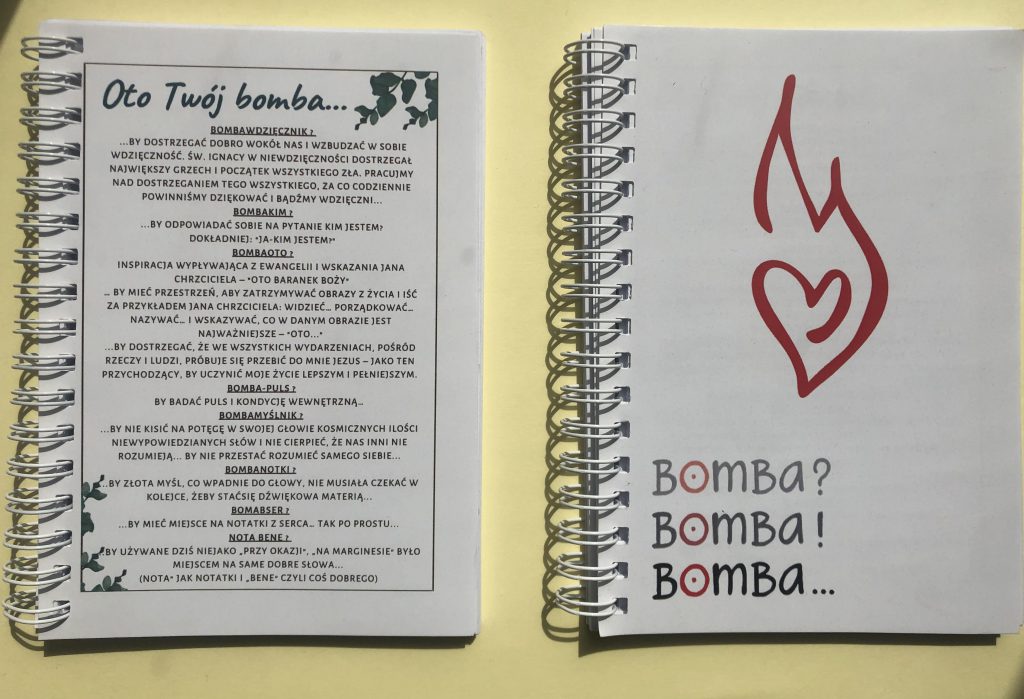 Oto Twój bomba...
BOMBAWDZIĘCZNIK ?
...BY DOSTRZEGAĆ DOBRO WOKÓŁ NAS I WZBUDZAĆ W SOBIE
WDZIĘCZNOŚĆ. ŚW. IGNACY W NIEWDZIĘCZNOŚCI DOSTRZEGAŁ
NAJWIĘKSZY GRZECH I POCZĄTEK WSZYSTKIEGO ZŁA. PRACUJMY
NAD DOSTRZEGANIEM TEGO WSZYSTKIEGO, ZA CO CODZIENNIE
POWINNIŚMY DZIĘKOWAĆ I BĄDŹMY WDZIĘCZNI...
BOMBAKIM ?
...BY ODPOWIADAĆ SOBIE NA PYTANIE KIM JESTEM?
DOKŁADNIEJ: "JA-KIM JESTEM?"
BOMBAOTO ?
INSPIRACJA WYPŁYWAJĄCA Z EWANGELII I WSKAZANIA JANA
CHRZCICIELA – "OTO BARANEK BOŻY"
... BY MIEĆ PRZESTRZEŃ, ABY ZATRZYMYWAĆ OBRAZY Z ŻYCIA I IŚĆ
ZA PRZYKŁADEM JANA CHRZCICIELA: WIDZIEĆ... PORZĄDKOWAĆ...
NAZYWAĆ... I WSKAZYWAĆ, CO W DANYM OBRAZIE JEST
NAJWAŻNIEJSZE – "OTO..."
...BY DOSTRZEGAĆ, ŻE WE WSZYSTKICH WYDARZENIACH, POŚRÓD
RZECZY I LUDZI, PRÓBUJE SIĘ PRZEBIĆ DO MNIE JEZUS – JAKO TEN
PRZYCHODZĄCY, BY UCZYNIĆ MOJE ŻYCIE LEPSZYM I PEŁNIEJSZYM.
BOMBA-PULS ?
BY BADAĆ PULS I KONDYCJĘ WEWNĘTRZNĄ...
BOMBAMYŚLNIK ?
...BY NIE KISIĆ NA POTĘGĘ W SWOJEJ GŁOWIE KOSMICZNYCH ILOŚCI
NIEWYPOWIEDZIANYCH SŁÓW I NIE CIERPIEĆ, ŻE NAS INNI NIE
ROZUMIEJĄ... BY NIE PRZESTAĆ ROZUMIEĆ SAMEGO SIEBIE...
BOMBANOTKI ?
...BY ZŁOTA MYŚL, CO WPADNIE DO GŁOWY, NIE MUSIAŁA CZEKAĆ W
KOLEJCE, ŻEBY STAĆSIĘ DŹWIĘKOWA MATERIĄ...
BOMABSER ?
...BY MIEĆ MIEJSCE NA NOTATKI Z SERCA... TAK PO PROSTU...
NOTA BENE ?
BY UŻYWANE DZIŚ NIEJAKO „PRZY OKAZJI", „NA MARGINESIE" BYŁO
MIEJSCEM NA SAME DOBRE SŁOWA...
(NOTA" JAK NOTATKI I „BENE" CZYLI COŚ DOBREGO)
BOMBA?
BOMBA!
BOMBA...